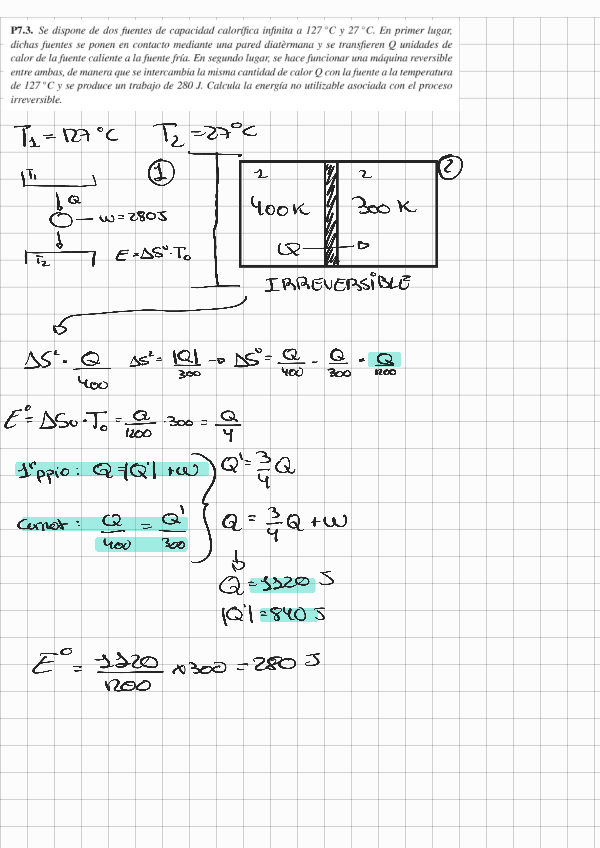 P7.3. Se dispone de dos fuentes de capacidad calorífica infinita a 127 °C y 27 °C. En primer lugar,
dichas fuentes se ponen en contacto mediante una pared diatèrmana y se transfieren Q unidades de
calor de la fuente caliente a la fuente fría. En segundo lugar, se hace funcionar una máquina reversible
entre ambas, de manera que se intercambia la misma cantidad de calor Q con la fuente a la temperatura
de 127 °C y se produce un trabajo de 280 J. Calcula la energía no utilizable asociada con el proceso
irreversible.
T1 = 127 °C T2 = 27 °C
1 2
T1
Q
W = 280 J
T2 E = ΔSᵘ · T₀
1 2
400 K 300 K
Q
IRREVERSIBLE
ΔS¹ = Q/400 ΔS² = |Q|/300 → ΔSᵘ = Q/400 - Q/300 = Q/1200
Eᵘ = ΔSu · T₀ = Q/1200 · 300 = Q/4
1º ppio: Q = |Q'| + W
Q' = 3/4 Q
Carnot: Q/400 = Q'/300
Q = 3/4 Q + W
Q = 1120 J
|Q'| = 840 J
Eᵘ = 1120/1200 × 300 = 280 J